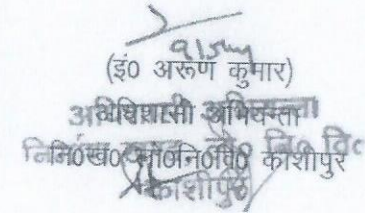 (इं0 अरूण कुमार)
अधिशासी अभियन्ता
नि0ख0 लो0नि0वि0 काशीपुर
काशीपुर